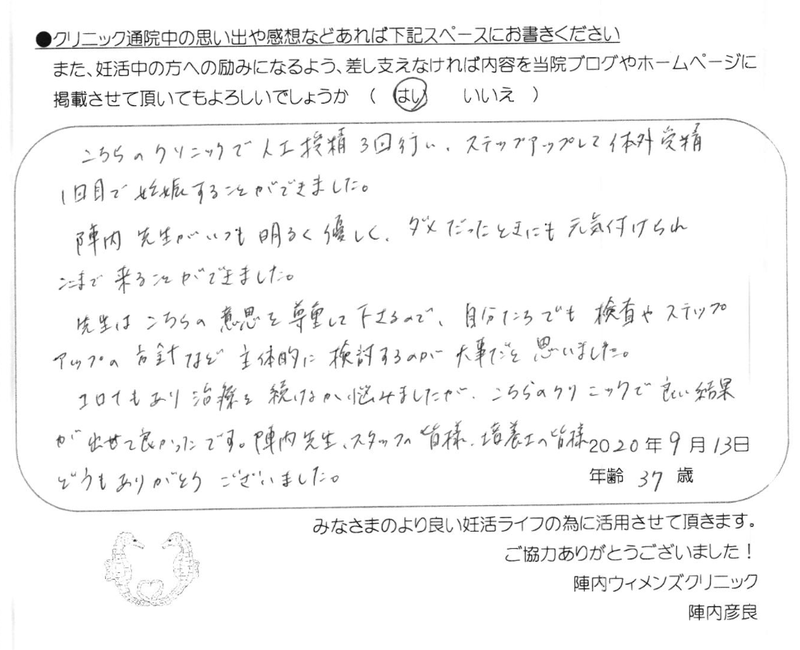 ●クリニック通院中の思い出や感想などあれば下記スペースにお書きください
また、妊活中の方への励みになるよう、差し支えなければ内容を当院ブログやホームページに
掲載させて頂いてもよろしいでしょうか （ はい　　いいえ ）
こちらのクリニックで人工授精3回行い、ステップアップして体外受精
1回目で妊娠することができました。
陣内先生がいつも明るく優しく、ダメだったときにも元気付けられ
ここまで来ることができました。
先生はこちらの意思を尊重して下さるので、自分たちでも検査やステップ
アップの方針など主体的に検討するのが大事だと思いました。
コロナもあり治療を続けるか悩みましたが、こちらのクリニックで良い結果
が出せて良かったです。陣内先生、スタッフの皆様、培養士の皆様
どうもありがとうございました。
2020年9月13日
年齢 37 歳
みなさまのより良い妊活ライフの為に活用させて頂きます。
ご協力ありがとうございました！
陣内ウィメンズクリニック
陣内彦良